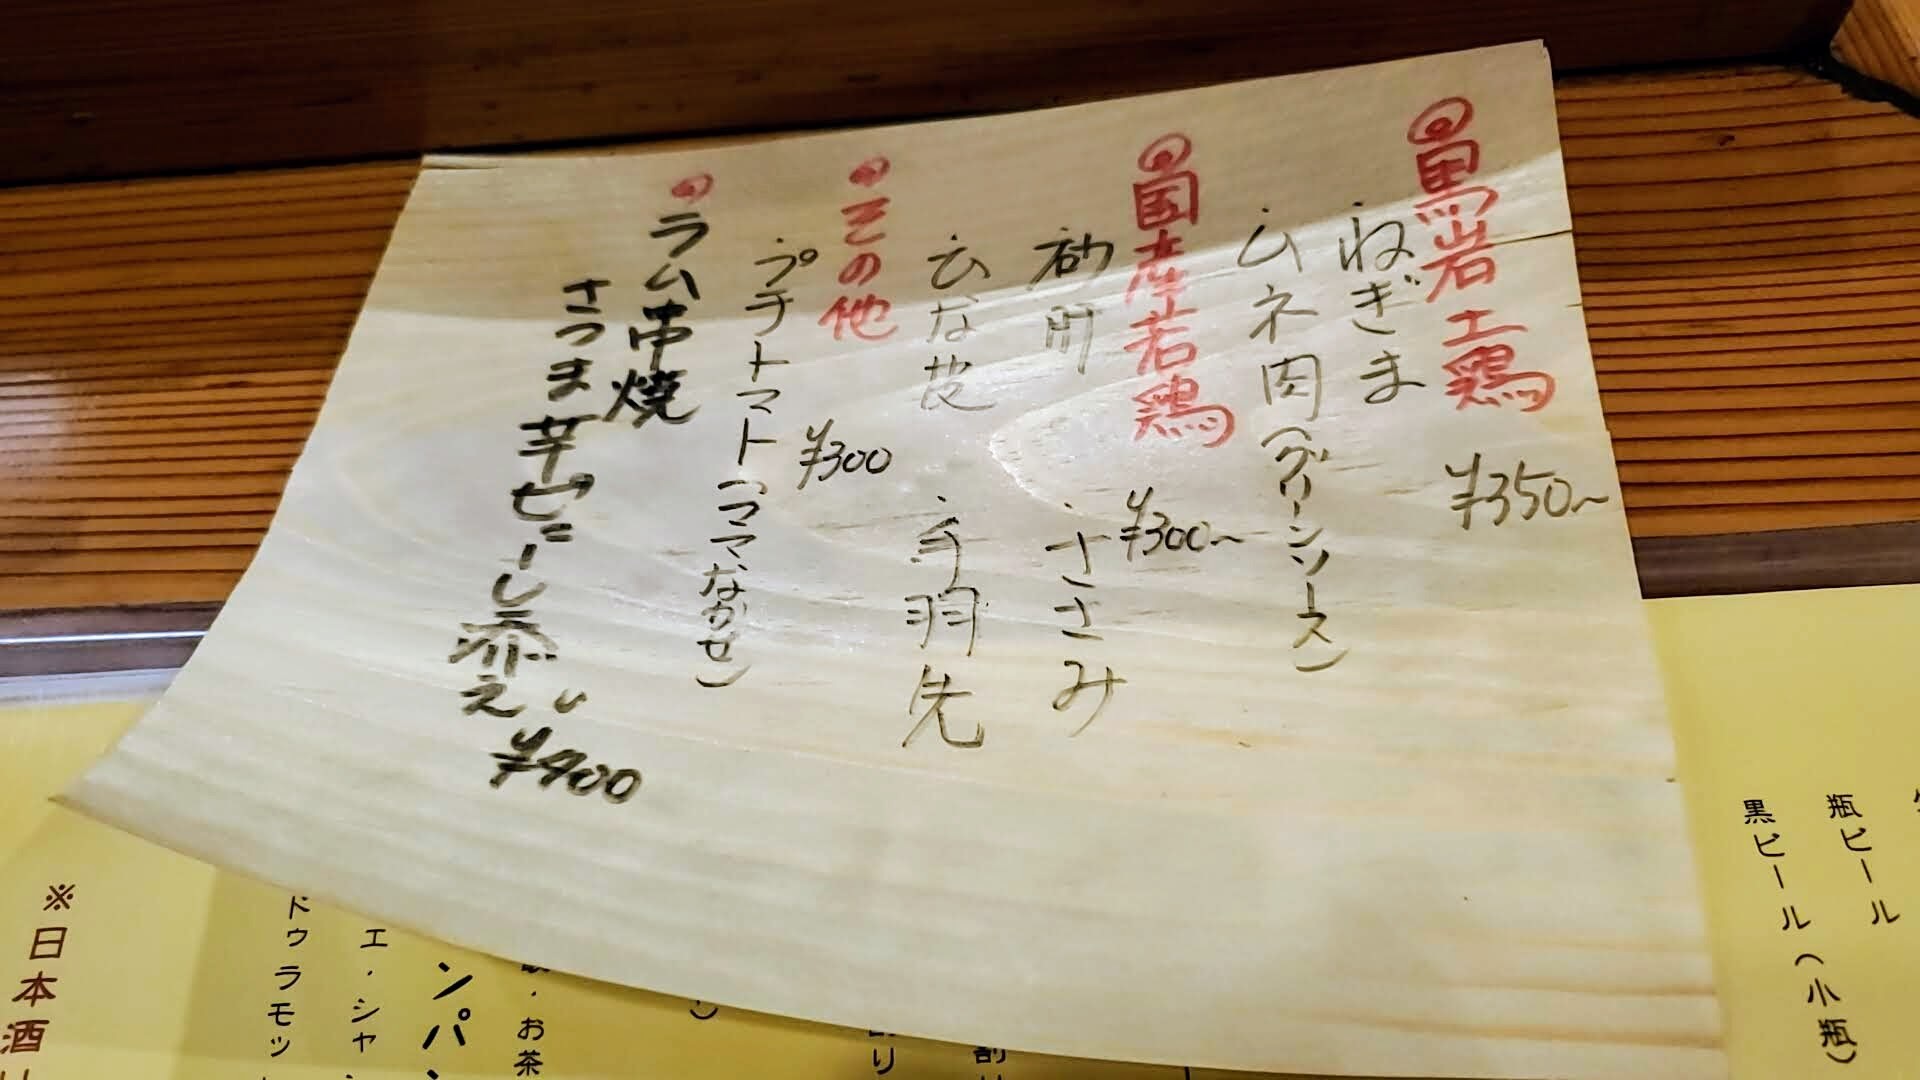 ◎黒岩土鶏 ¥350~
・ねぎま
・ムネ肉(グリーンソース)
◎国産若鶏 ¥300~
・砂肝 ・ささみ
・ひな皮 ・手羽先
◎その他 ¥300
・プチトマト(ママなかせ)
◎ラム串焼
さつま芋ピューレ添え ¥900
瓶ビール
黒ビール(小瓶)
・お茶
ンパ
エ・シャ
ドゥ ラモッ
※日本酒